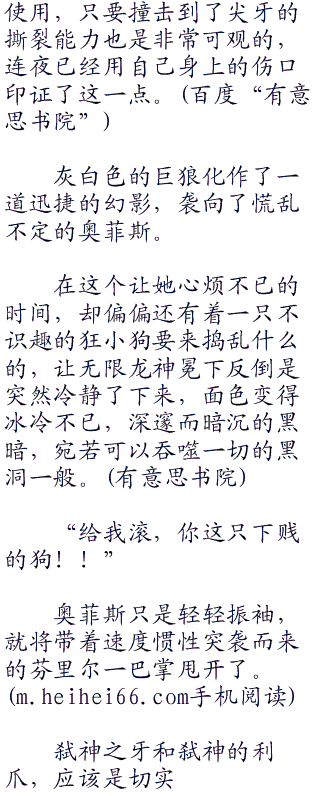 使用，只要撞击到了尖牙的
撕裂能力也是非常可观的，
连夜已经用自己身上的伤口
印证了这一点。(百度“有意
思书院”)
灰白色的巨狼化作了一
道迅捷的幻影，袭向了慌乱
不定的奥菲斯。
在这个让她心烦不已的
时间，却偏偏还有着一只不
识趣的狂小狗要来捣乱什么
的，让无限龙神冕下反倒是
突然冷静了下来，面色变得
冰冷不已，深邃而暗沉的黑
暗，宛若可以吞噬一切的黑
洞一般。(有意思书院)
“给我滚，你这只下贱
的狗！！”
奥菲斯只是轻轻振袖，
就将带着速度惯性突袭而来
的芬里尔一巴掌甩开了。
(m.heihei66.com手机阅读)
弑神之牙和弑神的利
爪，应该是切实